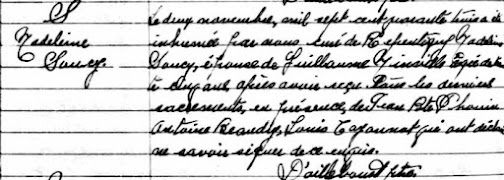 S
Madeleine
Soucy.
Le deux novembre, mil sept cent soixante trois a été
inhumée par nous curé de Repentigny Madeleine
Soucy, épouse de Guillaume âgée de
te ans, après avoir reçu tous les derniers
sacrements, en présence de Jean Bte
Antoine Beaudry, Louis qui ont déclaré
ne savoir signer de ce enquis.
Daillebout ptre